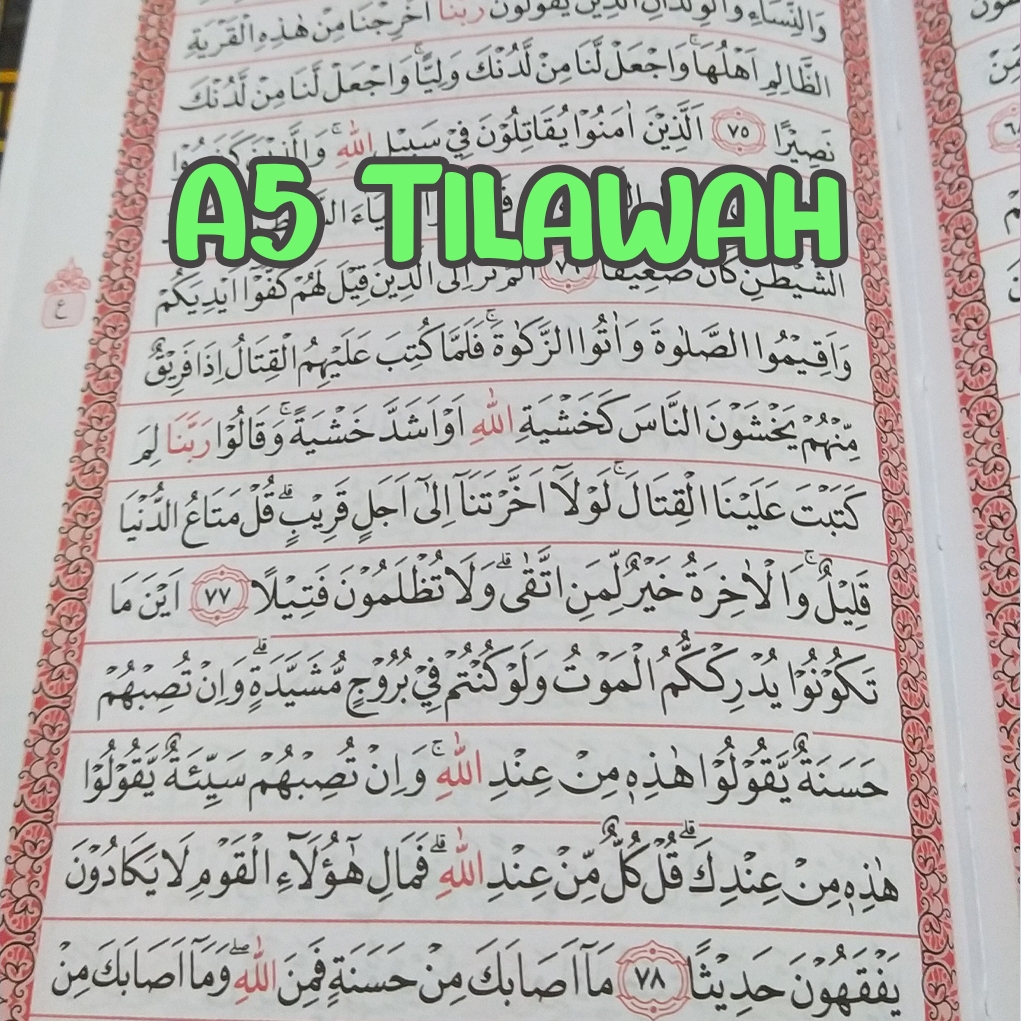 وَالنِّسَاۤءِ وَالْوِلْدَانِ الَّذِيْنَ يَقُوْلُوْنَ رَبَّنَآ اَخْرِجْنَا مِنْ هٰذِهِ الْقَرْيَةِ
الظَّالِمِ اَهْلُهَاۚ وَاجْعَلْ لَّنَا مِنْ لَّدُنْكَ وَلِيًّاۚ وَاجْعَلْ لَّنَا مِنْ لَّدُنْكَ
نَصِيْرًا ٧٥ اَلَّذِيْنَ اٰمَنُوْا يُقَاتِلُوْنَ فِيْ سَبِيْلِ اللّٰهِ ۚ وَالَّذِيْنَ كَفَرُوْا
A5 TILAWAH
الشَّيْطٰنِ كَانَ ضَعِيْفًا ٧٦ اَلَمْ تَرَ اِلَى الَّذِيْنَ قِيْلَ لَهُمْ كُفُّوْٓا اَيْدِيَكُمْ
ع
وَاَقِيْمُوا الصَّلٰوةَ وَاٰتُوا الزَّكٰوةَۚ فَلَمَّا كُتِبَ عَلَيْهِمُ الْقِتَالُ اِذَا فَرِيْقٌ
مِّنْهُمْ يَخْشَوْنَ النَّاسَ كَخَشْيَةِ اللّٰهِ اَوْ اَشَدَّ خَشْيَةً ۚ وَقَالُوْا رَبَّنَا لِمَ
كَتَبْتَ عَلَيْنَا الْقِتَالَۚ لَوْلَآ اَخَّرْتَنَآ اِلٰٓى اَجَلٍ قَرِيْبٍۗ قُلْ مَتَاعُ الدُّنْيَا
قَلِيْلٌۚ وَالْاٰخِرَةُ خَيْرٌ لِّمَنِ اتَّقٰىۗ وَلَا تُظْلَمُوْنَ فَتِيْلًا ٧٧ اَيْنَ مَا
تَكُوْنُوْا يُدْرِكْكُّمُ الْمَوْتُ وَلَوْ كُنْتُمْ فِيْ بُرُوْجٍ مُّشَيَّدَةٍۗ وَاِنْ تُصِبْهُمْ
حَسَنَةٌ يَّقُوْلُوْا هٰذِهٖ مِنْ عِنْدِ اللّٰهِ ۚ وَاِنْ تُصِبْهُمْ سَيِّئَةٌ يَّقُوْلُوْا
هٰذِهٖ مِنْ عِنْدِكَۗ قُلْ كُلٌّ مِّنْ عِنْدِ اللّٰهِ ۗ فَمَالِ هٰٓؤُلَاۤءِ الْقَوْمِ لَا يَكَادُوْنَ
يَفْقَهُوْنَ حَدِيْثًا ٧٨ مَآ اَصَابَكَ مِنْ حَسَنَةٍ فَمِنَ اللّٰهِ ۖ وَمَآ اَصَابَكَ مِنْ